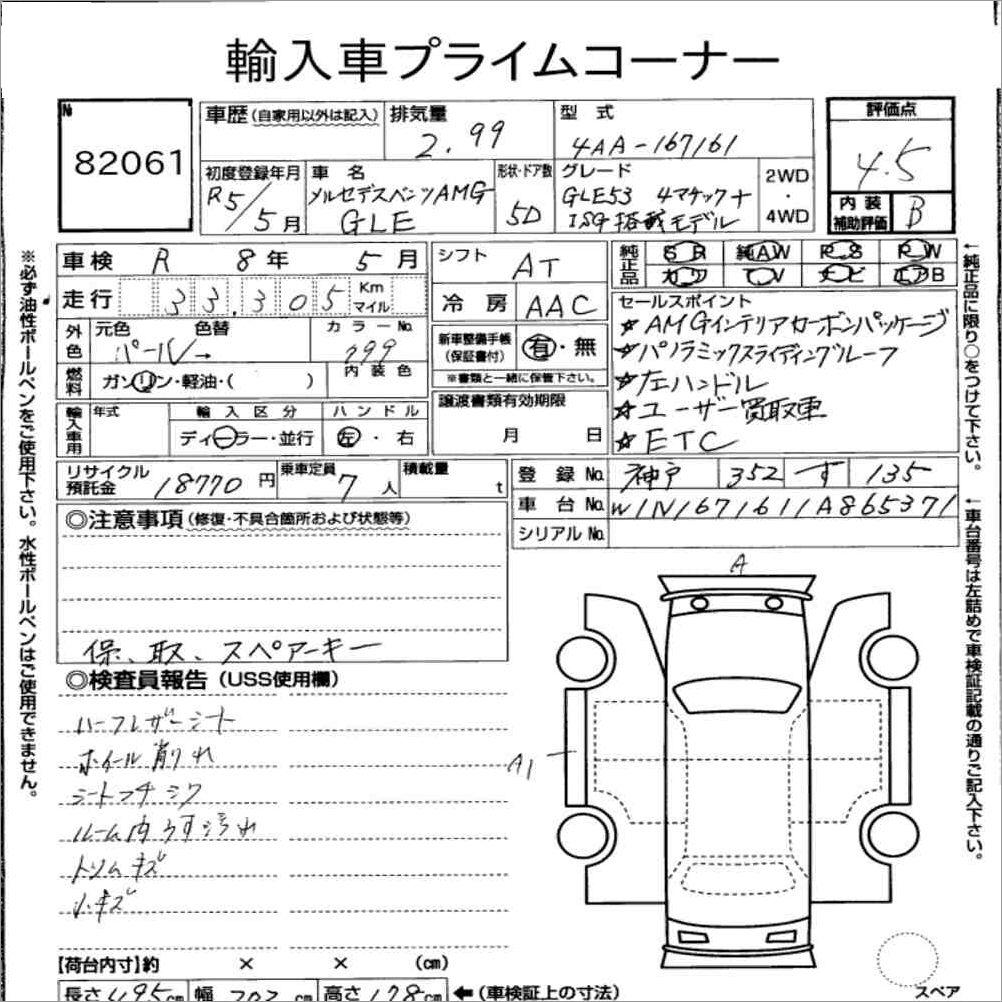 輸入車プライムコーナー
No
82061
車歴 (自家用以外は記入)
排気量
2.99
型式
4AA-167161
評価点
4.5
内装
補助評価
B
初度登録年月
R5/5月
車名
メルセデスベンツAMG
GLE
形状・ドア数
5D
グレード
GLE53 4マチック+
ISG搭載モデル
2WD
・
4WD
車検 R 8年 5月
走行 33,305 Km
マイル
シフト AT
冷房 AAC
純正品 SR 純AW PS PW
カワ TV ナビ エアB
外色
元色 色替
パール→
カラーNo.
799
内装色
燃料
ガソリン・軽油・( )
新車整備手帳
(保証書付)
有・無
※書類と一緒に保管下さい。
セールスポイント
☆AMGインテリアカーボンパッケージ
☆パノラミックスライディングルーフ
☆左ハンドル
☆ユーザー買取車
☆ETC
輸入車用
年式
輸入区分
ディーラー・並行
ハンドル
左・右
譲渡書類有効期限
月 日
リサイクル
預託金
18770円
乗車定員
7人
積載量
t
登録No. 神戸 352 す 135
車台No. W1N1671611A865371
シリアルNo.
◎注意事項 (修復・不具合箇所および状態等)
保、取、スペアーキー
◎検査員報告 (USS使用欄)
ハーフレザーシート
ホイール削れ
シートフチシワ
ルーム内うす汚れ
トリムキズ
小キズ
A
A1
【荷台内寸】約 × × (cm)
長さ495cm 幅202cm 高さ178cm ←(車検証上の寸法)
スペア
※必ず油性ボールペンをご使用下さい。水性ボールペンはご使用できません。
←純正品に限り○をつけて下さい。
←車台番号は左詰めで車検証記載の通りご記入下さい。